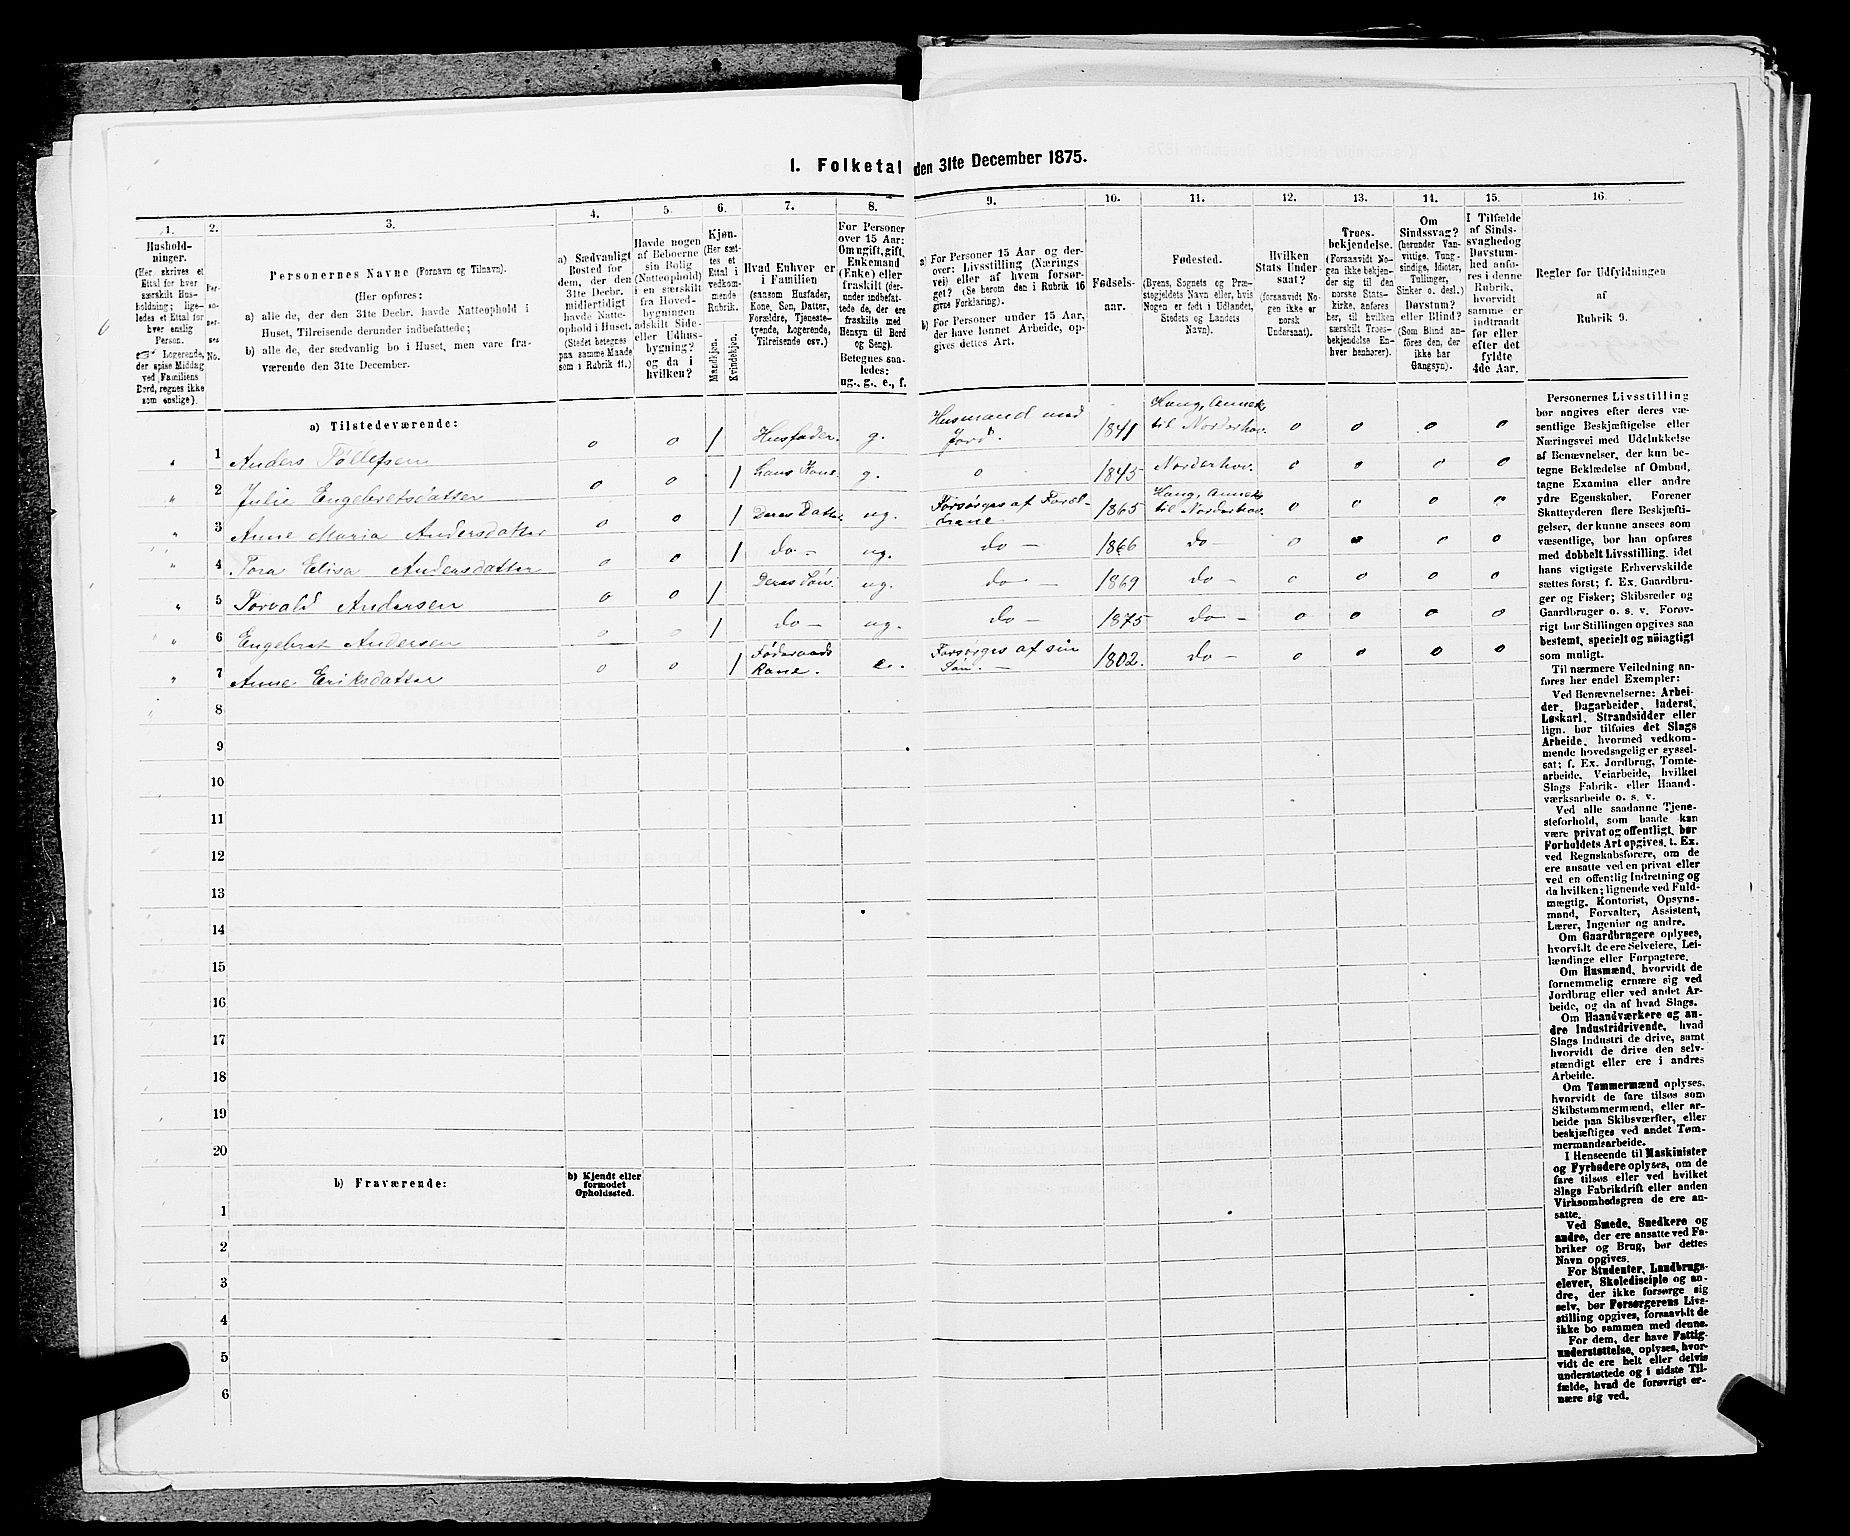 I. Folketal den 31te December 1875.
1. 2. 3. 4. 5. 6. 7. 8. 9. 10. 11. 12. 13. 14. 15. 16.
Hushold-
ninger.
(Her skrives et
Ettal for hver
særskilt Hus-
holdning; lige-
ledes et Ettal for
hver enslig
Person.
☞ Logerende,
der spise Middag
ved Familiens
Bord, regnes ikke
som enslige).
Per-
so-
ner-
nes
No.
Personernes Navne (Fornavn og Tilnavn).
(Her opføres:
a) alle de, der den 31te Decbr. havde Natteophold i
Huset, Tilreisende derunder indbefattede;
b) alle de, der sædvanlig bo i Huset, men vare fra-
værende den 31te December.
a) Sædvanligt
Bosted for
dem, der den
31te Decbr.
midlertidigt
havde Natte-
ophold i Huset.
(Stedet betegnes
paa samme Maade
som i Rubrik 11.)
Havde nogen
af Beboerne
sin Bolig
(Natteophold)
i en særskilt
fra Hoved-
bygningen
adskilt Side-
eller Udhus-
bygning?
og da i
hvilken?
Kjøn.
(Her sæt-
tes et
Ettal i
vedkom-
mende
Rubrik.
Mandkjøn.
Kvindekjøn.
Hvad Enhver er
i Familien
(saasom Husfader,
Kone, Søn, Datter,
Forældre, Tjeneste-
tyende, Logerende,
Tilreisende osv.)
For Personer
over 15 Aar:
Om ugift, gift,
Enkemand
(Enke) eller
fraskilt (der-
under indbefat-
tede de, der ere
fraskilte med
Hensyn til Bord
og Seng).
Betegnes saa-
ledes:
ug., g., e., f.
a) For Personer 15 Aar og der-
over: Livsstilling (Nærings-
vei) eller af hvem forsør-
get? (Se herom den i Rubrik 16
givne Forklaring).
b) For Personer under 15 Aar,
der have lønnet Arbeide, op-
gives dettes Art.
Fødsels-
aar.
Fødested.
(Byens, Sognets og Præ-
stegjeldets Navn eller, hvis
Nogen er født i Udlandet,
Stedets og Landets
Navn).
Hvilken
Stats Under-
saat?
(forsaavidt No-
gen ikke er
norsk
Undersaat).
Troes-
bekjendelse.
(Forsaavidt No-
gen ikke bekjen-
der sig til den
norske Stats-
kirke, anføres
her, til hvilken
særskilt Troes-
bekjendelse En-
hver henhører).
Om
Sindssvag?
(herunder Van-
vittige, Tung-
sindige, Idioter,
Tullinger,
Sinker o. desl.)
Døvstum?
eller Blind?
(Som Blind an-
føres den, der
ikke har
Gangsyn).
I Tilfælde
af Sinds-
svaghed og
Døvstum-
hed anfø-
res i denne
Rubrik,
hvorvidt
samme er
indtraadt
før eller
efter det
fyldte
4de Aar.
Regler for Udfyldningen
af
Rubrik 9.
a) Tilstedeværende:
" 1 Anders Tollefsen 0 0 1 Husfader. g. Husmand med Jord. 1841 Haug, Annek til Norderhov. 0 0 0 0
" 2 Julie Engebretsdatter 0 0 1 hans Kone g. 0 1845 Norderhov. 0 0 0 0
" 3 Anne Maria Andersdatter 0 0 1 Deres Datter ug. Forsørges af Foræl- 1865 Haug, Annek til Norderhov. 0 0 0 0
" 4 Tora Elisa Andersdatter 0 0 1 do — ug. do — 1866 do — 0 0 0 0
" 5 Torvald Andersen 0 0 1 Deres Søn. ug. do — 1869 do — 0 0 0 0
" 6 Engebret Andersen 0 0 1 do — ug. do — 1875 do — 0 0 0 0
" 7 Anne Eriksdatter 0 0 1 Føderaads Kone. e. Forsørges af sin Søn. — 1802. do — 0 0 0 0
8
9
10
11
12
13
14
15
16
17
18
19
20
b) Fraværende:
b) Kjendt eller
formodet
Opholdssted.
1
2
3
4
5
6
Personernes Livsstilling
bør angives efter deres væ-
sentlige Beskjæftigelse eller
Næringsvei med Udelukkelse
af Benævnelser, der kun be-
tegne Beklædelse af Ombud,
tagne Examina eller andre
ydre Egenskaber. Forener
Skatteyderen flere Beskjæfti-
gelser, der kunne ansees som
væsentlige, bør han opføres
med dobbelt Livsstilling, idet
hans vigtigste Erhvervskilde
sættes først; f. Ex. Gaardbru-
ger og Fisker; Skibsreder og
Gaardbruger o. s. v. Forøv-
rigt bør Stillingen opgives saa
bestemt, specielt og nøiagtigt
som muligt.
Til nærmere Veiledning an-
føres her endel Exempler:
Ved Benævnelserne: Arbei-
der, Dagarbeider, Inderst,
Løskarl, Strandsidder eller
lign. bør tilføies det Slags
Arbeide, hvormed vedkom-
mende hovedsagelig er syssel-
sat; f. Ex. Jordbrug, Tomte-
arbeide, Veiarbeide, hvilket
Slags Fabrik- eller Haand-
værksarbeide o. s. v.
Ved alle saadanne Tjene-
steforhold, som baade kan
være privat og offentligt, bør
Forholdets Art opgives, t. Ex.
ved Regnskabsførere, om de
ere ansatte ved en privat eller
ved en offentlig Indretning og
da hvilken; lignende ved Fuld-
mægtig, Kontorist, Opsyns-
mand, Forvalter, Assistent,
Lærer, Ingeniør og andre.
Om Gaardbrugere oplyses,
hvorvidt de ere Selveiere, Lei-
lændinge eller Forpagtere.
Om Husmænd, hvorvidt de
fornemmelig ernære sig ved
Jordbrug eller ved andet Ar-
beide, og da af hvad Slags.
Om Haandværkere og an-
dre Industridrivende, hvad
Slags Industri de drive, samt
hvorvidt de drive den selv-
stændigt eller ere i andres
Arbeide.
Om Tømmermænd oplyses,
hvorvidt de fare tilsøs som
Skibstømmermænd, eller ar-
beide paa Skibsværfter, eller
beskjæftiges ved andet Tøm-
mermandsarbeide.
I Henseende til Maskinister
og Fyrbødere oplyses, om de
fare tilsøs eller ved hvilket
Slags Fabrikdrift eller anden
Virksomhedsgren de ere an-
satte.
Ved Smede, Snedkere og
andre, der ere ansatte ved Fa-
briker og Brug, bør dettes
Navn opgives.
For Studenter, Landbrugs-
elever, Skoledisciple og an-
dre, der ikke forsørge sig
selv, bør Forsørgerens Livs-
stilling opgives, forsaavidt de
ikke bo sammen med denne.
For dem, der have Fattig-
understøttelse, oplyses, hvor-
vidt de ere helt eller delvis
understøttede og i sidste Til-
fælde, hvad de forøvrigt er-
nære sig ved.